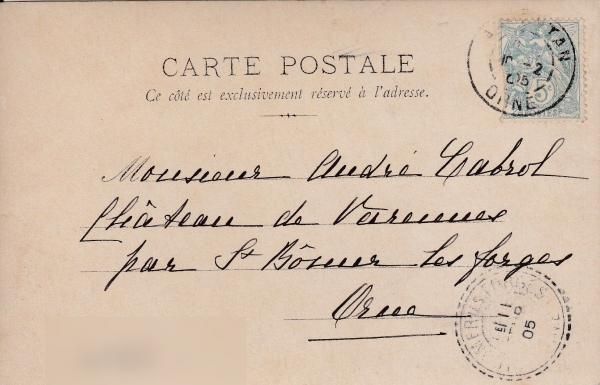 CARTE POSTALE
Ce côté est exclusivement réservé à l'adresse.
Monsieur André Cabrol
Château de Varennes
par St Bômer les forges
Orne
ORNE
05